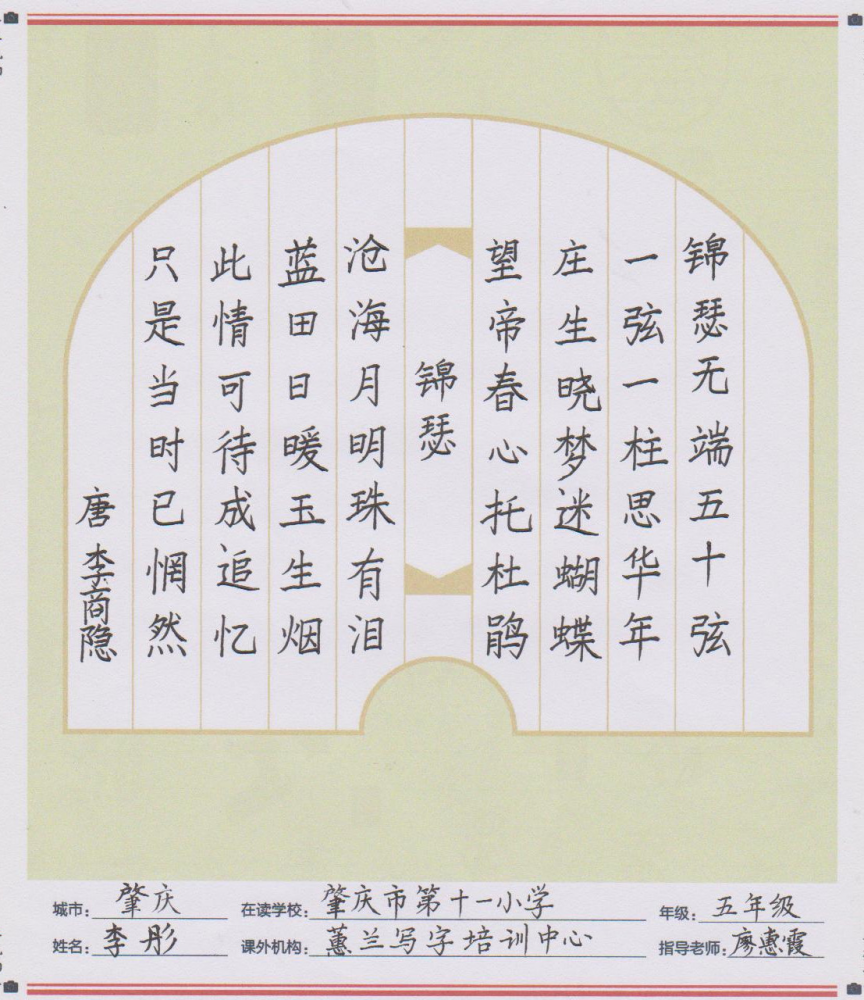 锦瑟无端五十弦
一弦一柱思华年
庄生晓梦迷蝴蝶
望帝春心托杜鹃
锦瑟
沧海月明珠有泪
蓝田日暖玉生烟
此情可待成追忆
只是当时已惘然
唐 李商隐
城市: 肇庆 在读学校: 肇庆市第十一小学 年级: 五年级
姓名: 李彤 课外机构: 蕙兰写字培训中心 指导老师: 廖惠霞